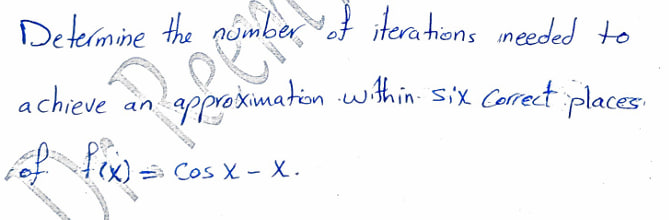 Determine the number of iterations needed to
achieve an approximation within six correct places
of f(x) = cos x - x.